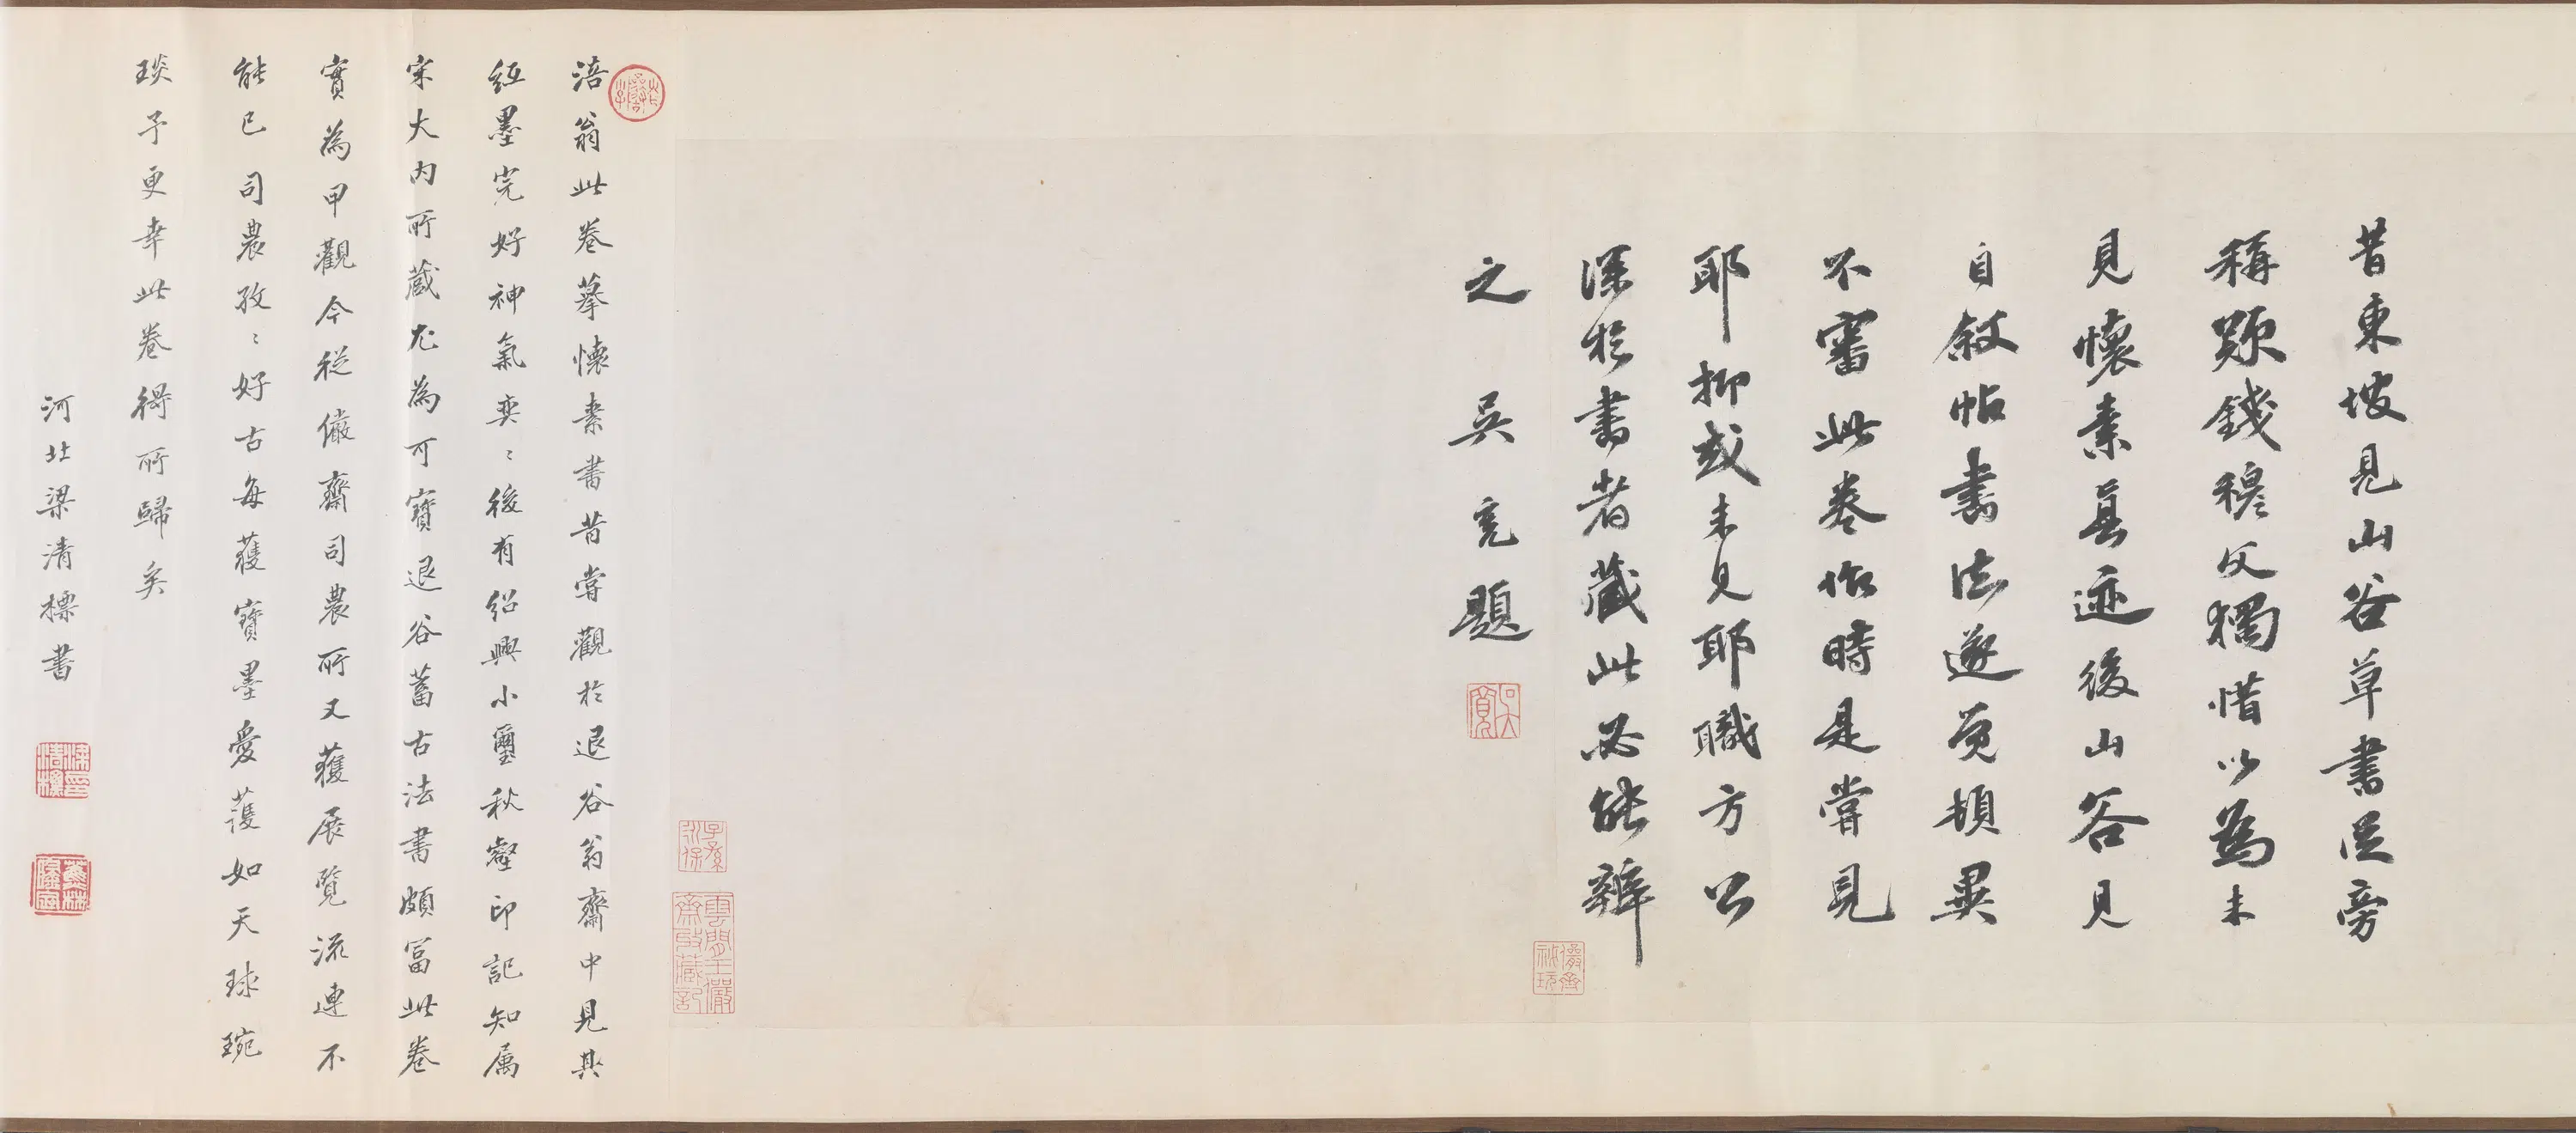 昔東坡見山谷草書從旁
稱題錢穆父獨惜以為未
見懷素真迹後山谷見
自敘帖書法遂覺頓異
不審此卷作時是嘗見
耶抑或未見耶職方公
深於書者藏此必能辨
之 吳寬題
涪翁此卷摹懷素書昔嘗觀於退谷翁齋中見其
紙墨完好神氣奕〻後有紹興小璽秋壑印記知屬
宋大內所藏尤為可寶退谷蓄古法書頗富此卷
實為甲觀今從儼齋司農所又獲展覽流連不
能已司農孜〻好古每獲寶墨愛護如天球琬
琰予更幸此卷得所歸矣
河北梁清標書
子孫永保
雲間王儼齋收藏記
儼齋秘玩